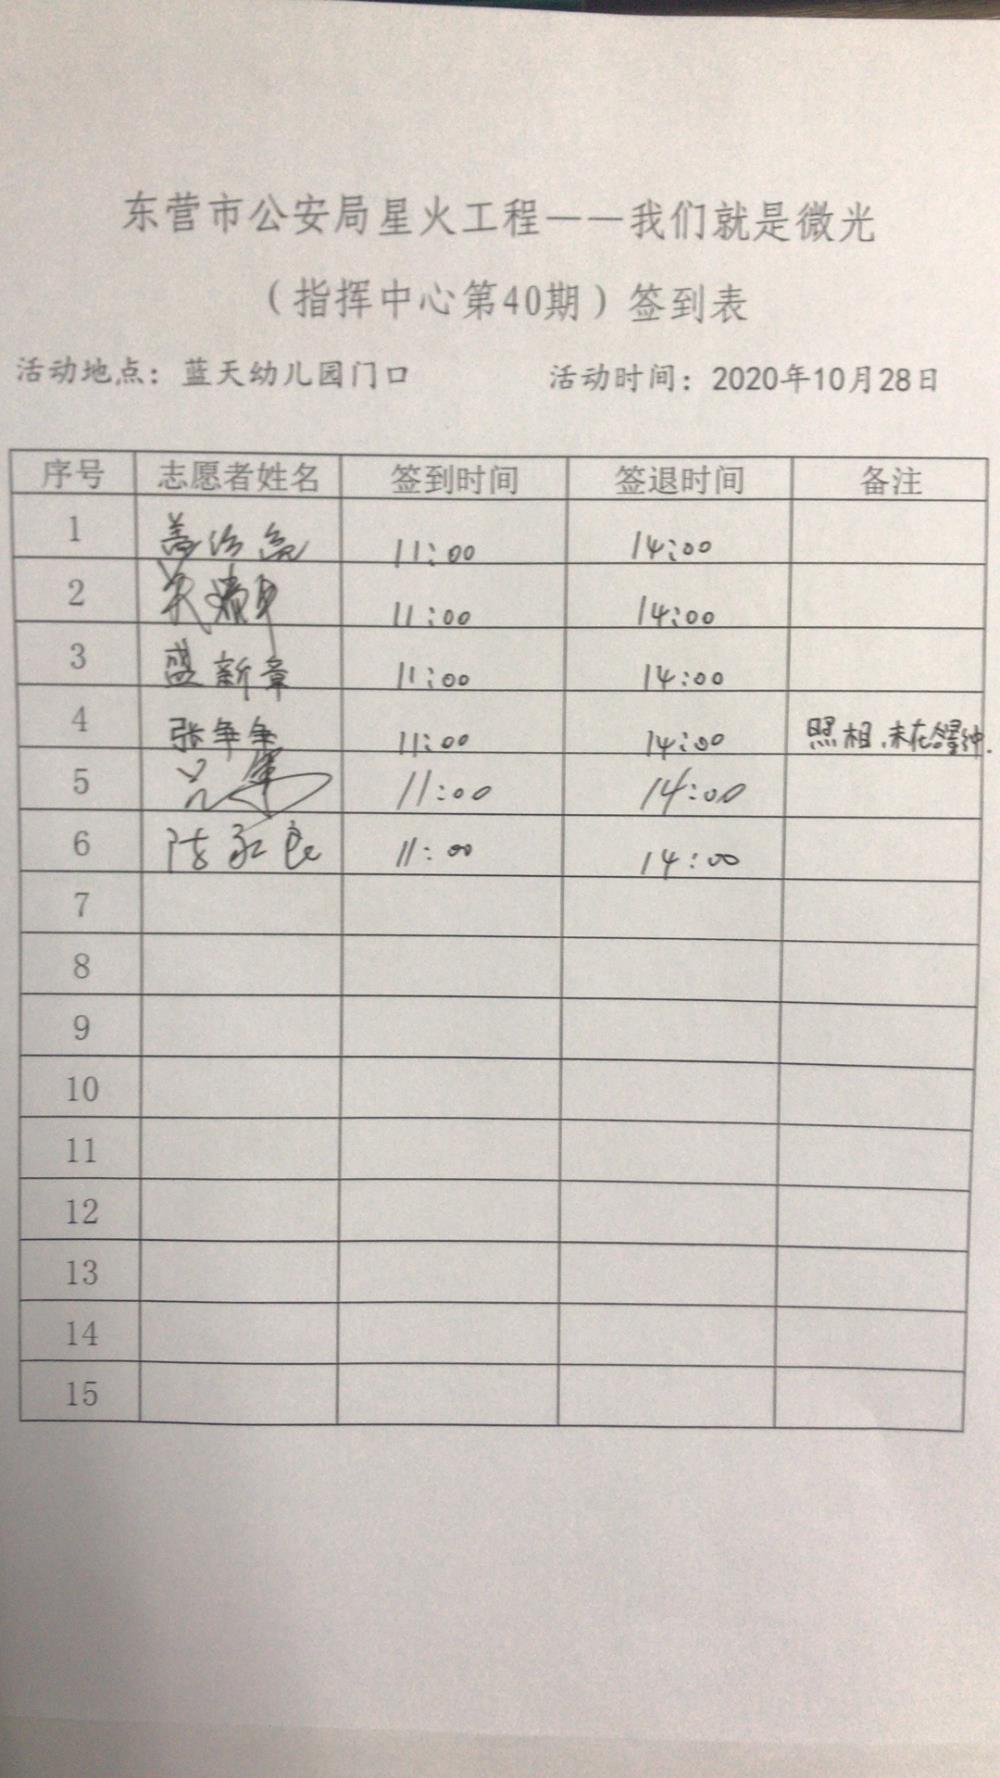 东营市公安局星火工程——我们就是微光
（指挥中心第40期）签到表
活动地点：蓝天幼儿园门口 活动时间：2020年10月28日
序号 志愿者姓名 签到时间 签退时间 备注
1 11:00 14:00
2 11:00 14:00
3 盛新章 11:00 14:00
4 张争争 11:00 14:00 照相，未在
5 11:00 14:00
6 陈永良 11:00 14:00
7
8
9
10
11
12
13
14
15